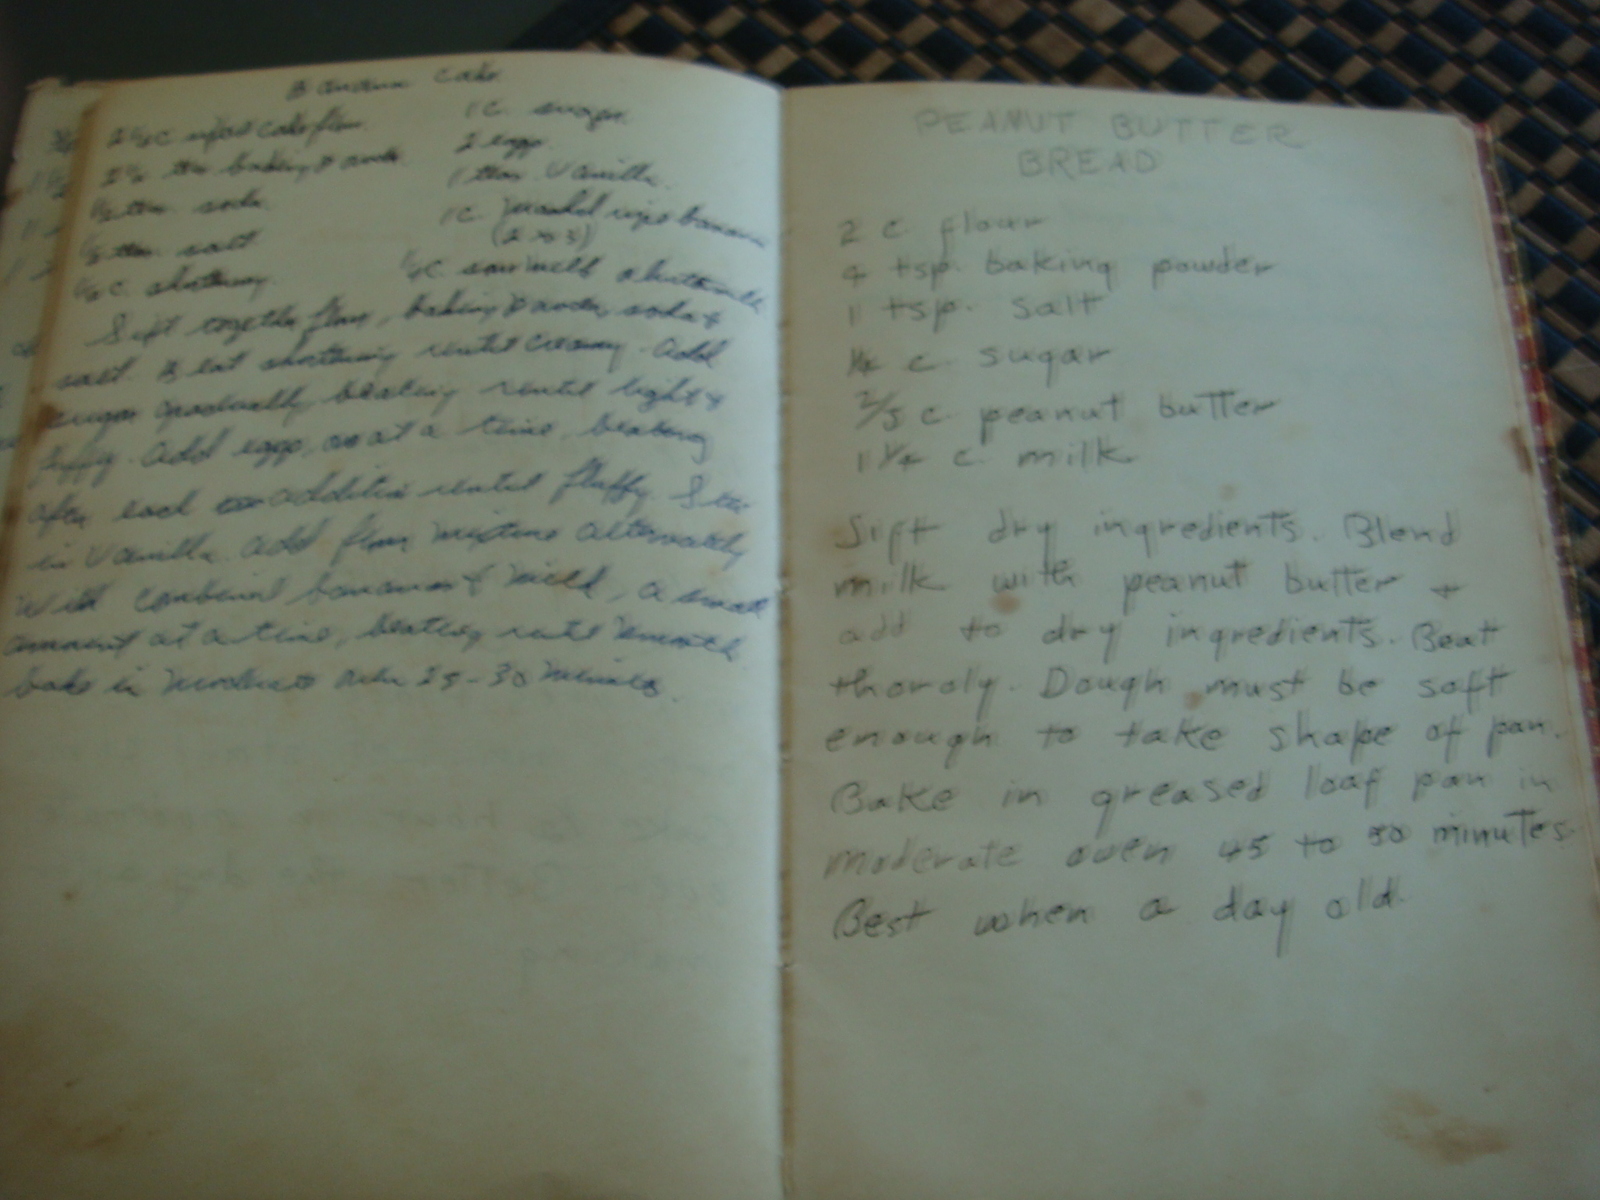 Banana Cake
2 1/4 c sifted cake flour
2 1/2 tsn baking powder
1/2 tsn. soda
1/2 tsn salt
1/2 c. shortening
1 c. sugar
2 eggs
1 tsn Vanilla
1 c mashed ripe banana
(2 to 3)
sour milk or buttermilk
Sift together flour, baking powder, soda &
salt. Beat shortening until creamy. Add
sugar gradually beating until light &
fluffy. Add eggs, at a time, beating
after each addition until fluffy. Stir
in Vanilla. Add flour mixture alternately
with combined bananas & milk, a small
amount at a time, beating until smooth
bake in moderate oven 25-30 minutes.
PEANUT BUTTER
BREAD
2 c flour
4 tsp. baking powder
1 tsp. salt
1/4 c. sugar
2/3 c. peanut butter
1 1/4 c. milk
Sift dry ingredients. Blend
milk with peanut butter +
add to dry ingredients. Beat
thoroly. Dough must be soft
enough to take shape of pan.
Bake in greased loaf pan in
moderate oven 45 to 50 minutes.
Best when a day old.